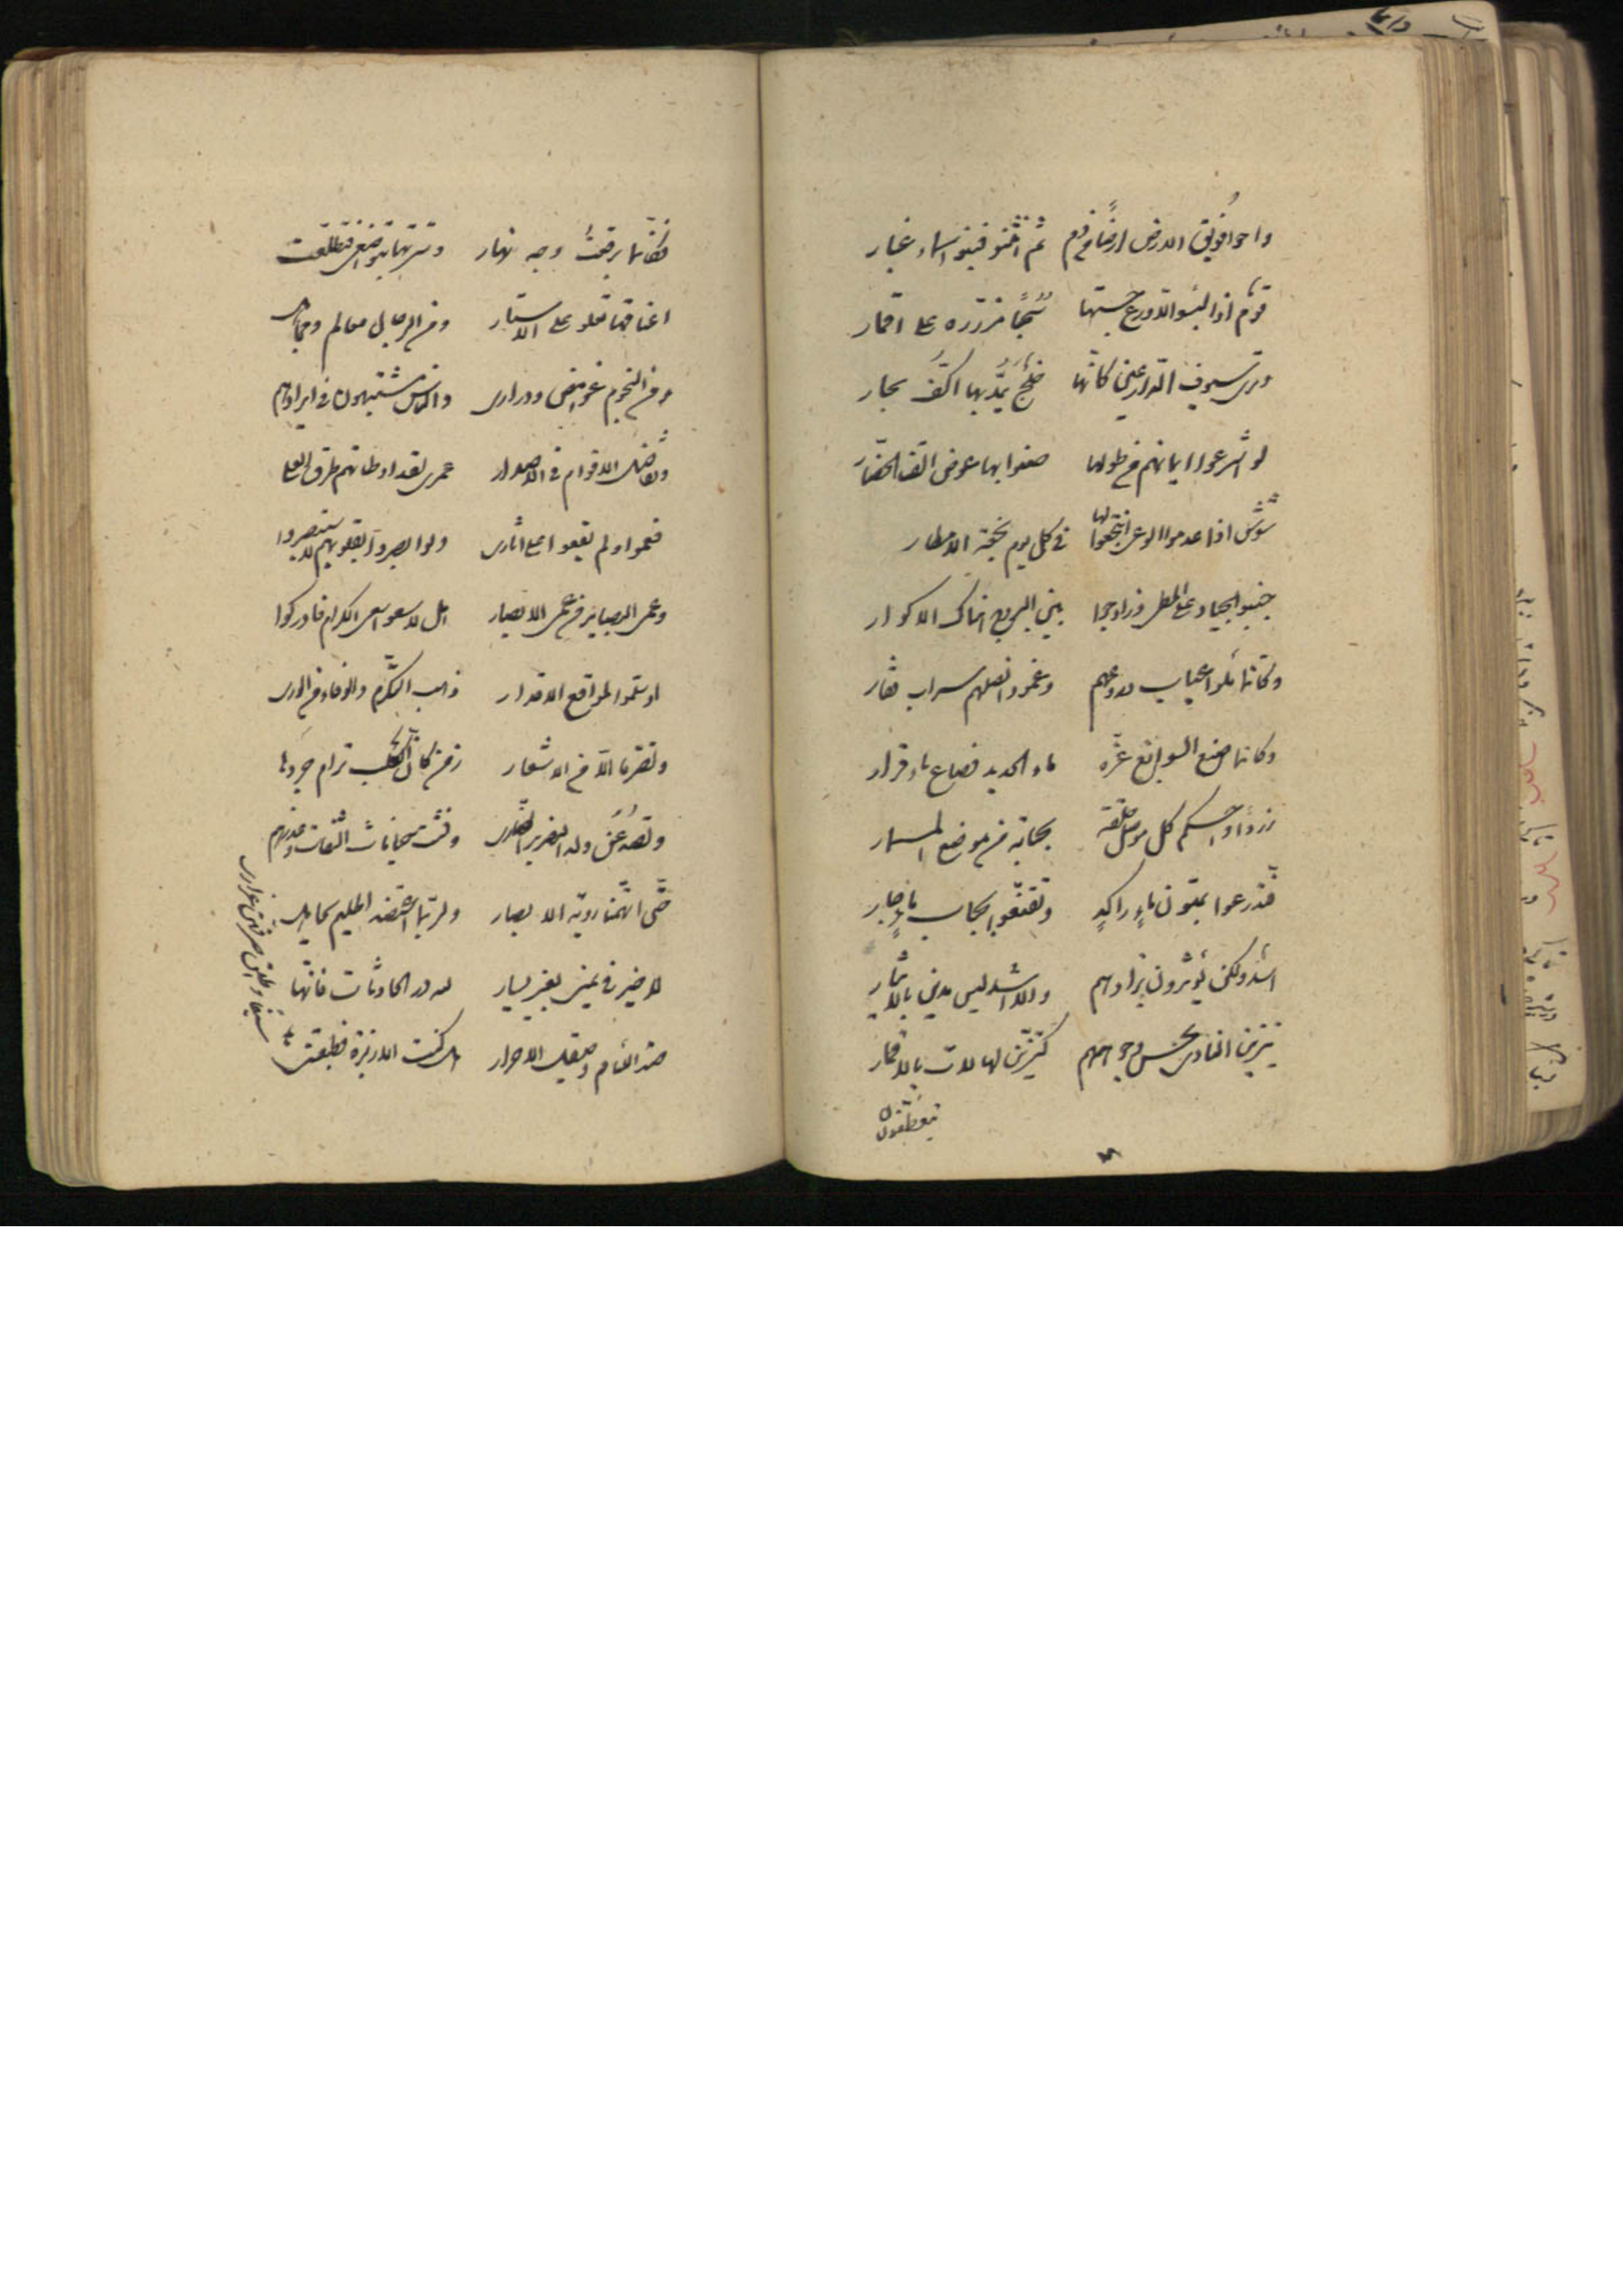 واحوا فويق الارض ارضا من دم ثم انثنوا فبنوا سماء غبار
قوم اذا لبسوا الدروع حسبتها سحبا مزررة على اقمار
وترى سيوف الدارعين كانها خلج يمد بها اكف بحار
لو اشرعوا ايمانهم من طولها طعنوا بها عوض القنا الخطار
شوس اذا عدموا الوغى انتجعوا لها في كل يوم نجعة الامطار
جنبوا الجياد على المطى وزاوجوا بين السروج هناك الاكوار
وكانما ملؤا عياب دروعهم وغمود انصلهم سراب قفار
وكانما صنع السوابغ عزه ماء الحديد فصاغ ماء قرار
زردا واحكم كل موصل حلقة بحبابة من موضع المسمار
فتدرعوا بمتون ماء راكد وتقنعوا بحباب ماء جار
اسد ولكن يؤثرون بزادهم والاسد ليس تدين بالايثار
يتزين النادى بحسن وجوههم كتزين الهالات بالاقمار
يتعطفون
فكانما برقعت وجه نهار وسترتها بتواضعى فتطلعت
اعناقها تعلو على الاستار ومن الرجال معالم ومجاهل
ومن النجوم غوامض ودرارى والناس مشتبهون فى ايرادهم
وتفاضل الاقوام فى الاصدار عمرى لقد اوطاتهم طرق العلى
فعموا ولم يقفوا على اثارى ولو ابصروا بقلوبهم لاستبصروا
وعمى البصاير من عمى الابصار هل لا سعوا سعى الكرام فادركوا
او سلموا لمواقع الاقدار ذهب التكرم والوفاء من الورى
وتصرما الا من الاشعار زمن كام الكلب ترام جروها
وتصد عن ولد الهزبر الضارى وفشت خيانات الثقات وغيرهم
حتى اتهمنا روية الابصار ولربما اعتضد الحليم بجاهل
لا خير فى يمنى بغير يسار لله در الحادثات فانها
صدا اللئام وصيقل الاحرار هل كنت الا زبرة فطبعننى
سيفا واطلق صرفهن غرارى